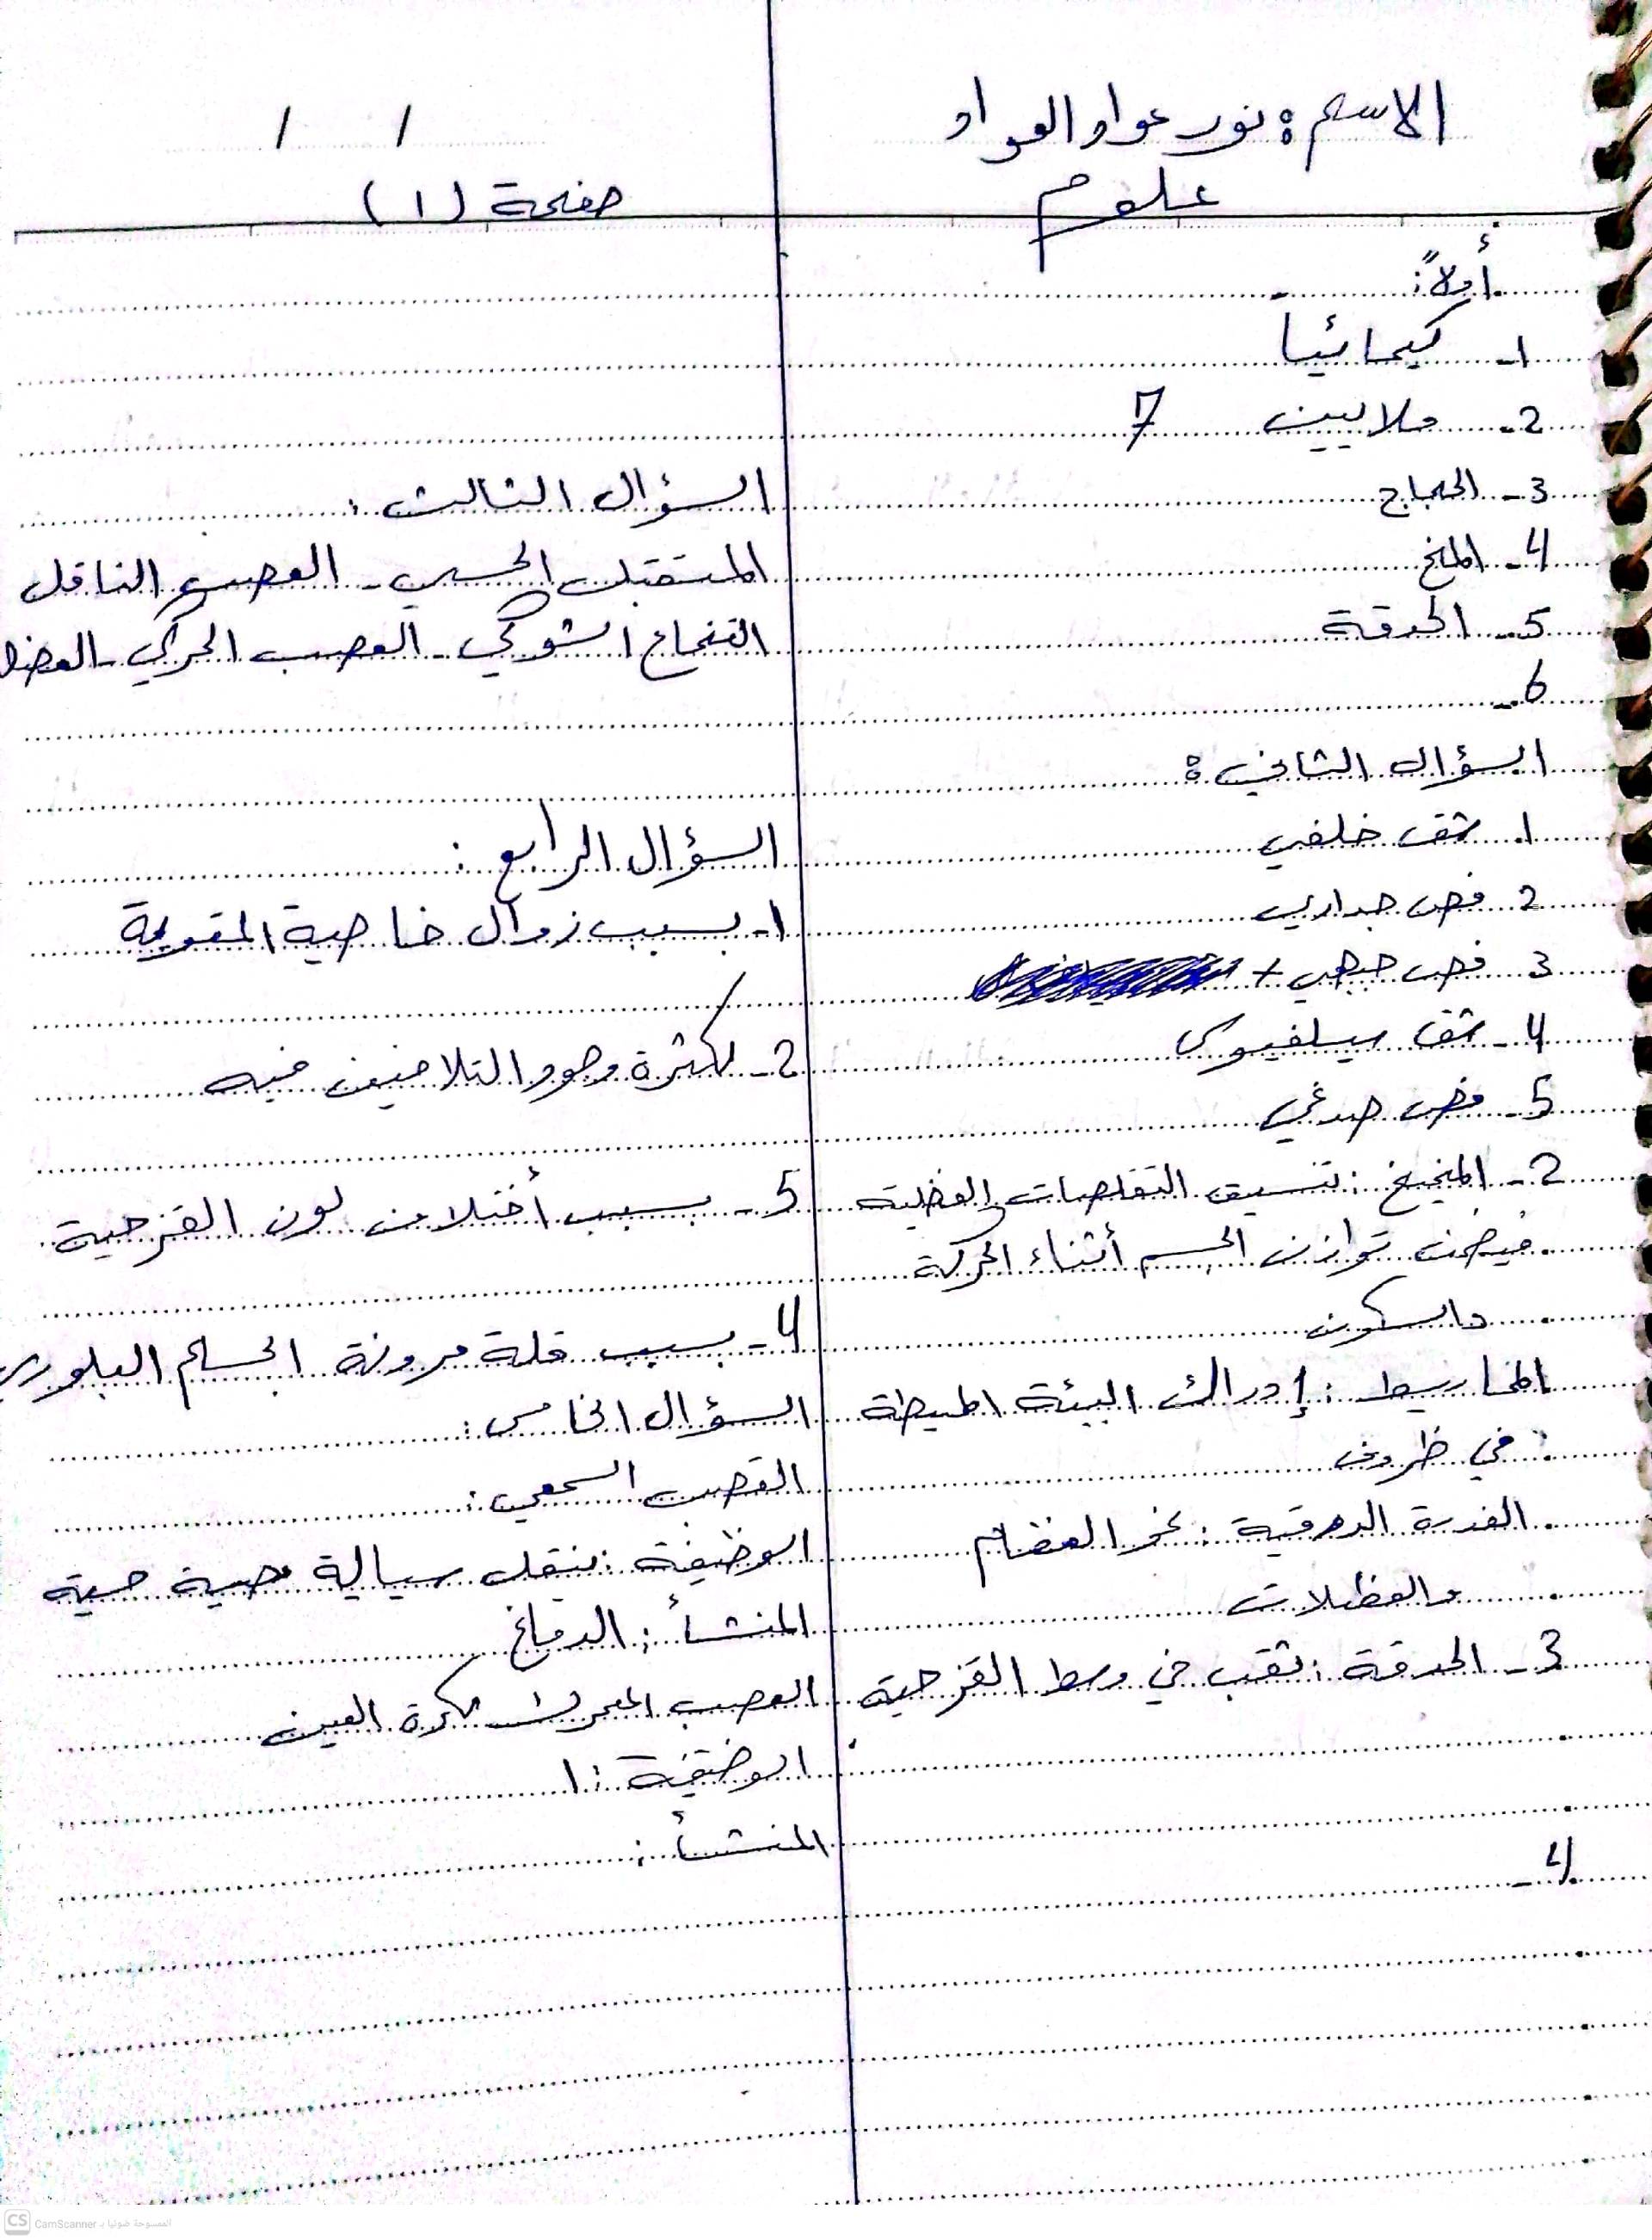 الاسم: نور عواد العواد
علوم
/ /
صفحة (١)
أولاً:
1- كيمائياً
2- ملايين 7
3- الحجاج
4- المخ
5- الحدقة
6-
السؤال الثاني:
1. شق خلفي
2. فص جداري
3. فص جبهي +
4- شق سيلفيوس
5- فص صدغي
2- المخيخ: تنسيق التقلصات العضلية
فيضمن توازن الجسم أثناء الحركة
والسكون
المخاريط: إدراك البيئة المحيطة
في ظروف
الغدة الدرقية: نمو العظام
والعظلات
3- الحدقة: ثقب في وسط القزحية
4-
السؤال الثالث:
المستقبل الحسي - العصب الناقل
النخاع الشوكي - العصب الحركي - العضل
السؤال الرابع:
1- بسبب زوال خاصية المقوية
2- لكثرة وجود التلافيف فيه
5- بسبب أختلاف لون القزحية
4- بسبب قلة مرونة الجسم البلوري
السؤال الخامس:
القصب السمعي:
الوظيفة: ينقل سيالة عصبية حسية
المنشأ: الدماغ
العصب المحرك لكرة العين
الوضيفة: ا
المنشأ:
CS CamScanner الممسوحة ضوئيا بـ